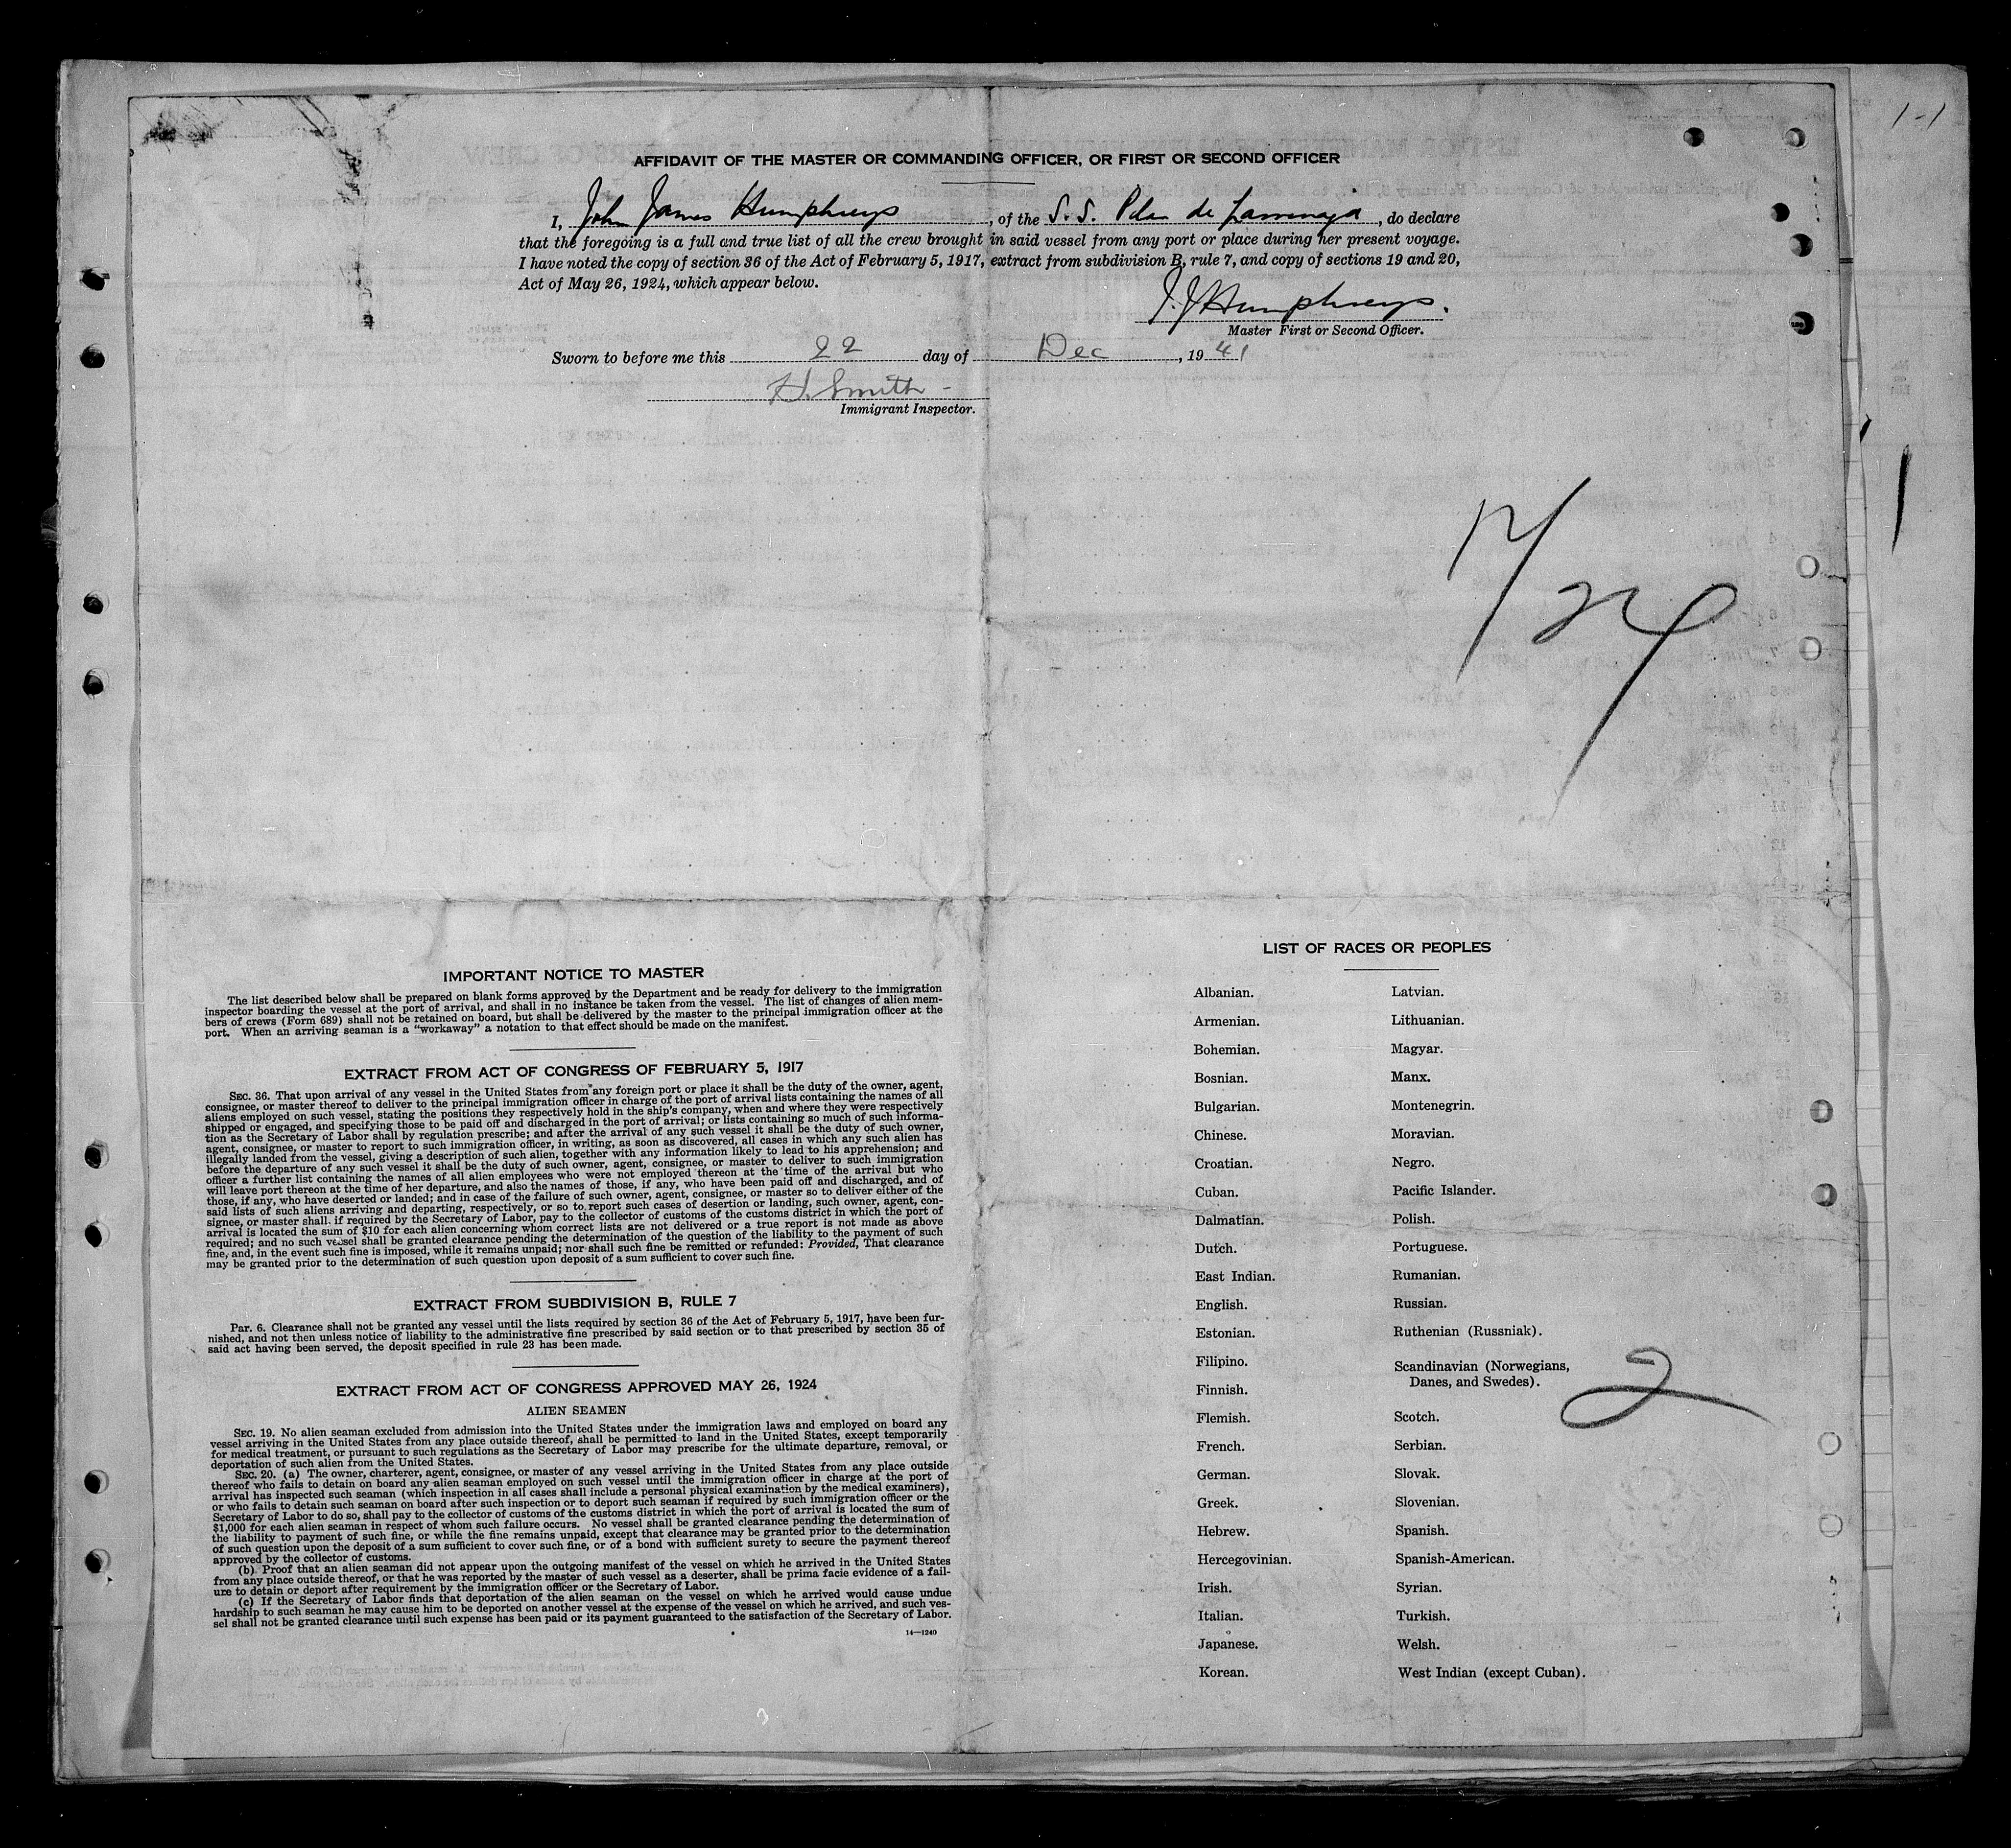 1-1
AFFIDAVIT OF THE MASTER OR COMMANDING OFFICER, OR FIRST OR SECOND OFFICER
I, John James Humphreys, of the S.S. Pilar de Larrinaga, do declare
that the foregoing is a full and true list of all the crew brought in said vessel from any port or place during her present voyage.
I have noted the copy of section 36 of the Act of February 5, 1917, extract from subdivision B, rule 7, and copy of sections 19 and 20,
Act of May 26, 1924, which appear below.
J. J Humphreys.
Master First or Second Officer.
Sworn to before me this 22 day of Dec, 1941
H. Smith -
Immigrant Inspector.
12/
24
IMPORTANT NOTICE TO MASTER
The list described below shall be prepared on blank forms approved by the Department and be ready for delivery to the immigration
inspector boarding the vessel at the port of arrival, and shall in no instance be taken from the vessel. The list of changes of alien mem-
bers of crews (Form 689) shall not be retained on board, but shall be delivered by the master to the principal immigration officer at the
port. When an arriving seaman is a "workaway" a notation to that effect should be made on the manifest.
EXTRACT FROM ACT OF CONGRESS OF FEBRUARY 5, 1917
SEC. 36. That upon arrival of any vessel in the United States from any foreign port or place it shall be the duty of the owner, agent,
consignee, or master thereof to deliver to the principal immigration officer in charge of the port of arrival lists containing the names of all
aliens employed on such vessel, stating the positions they respectively hold in the ship's company, when and where they were respectively
shipped or engaged, and specifying those to be paid off and discharged in the port of arrival; or lists containing so much of such informa-
tion as the Secretary of Labor shall by regulation prescribe; and after the arrival of any such vessel it shall be the duty of such owner,
agent, consignee, or master to report to such immigration officer, in writing, as soon as discovered, all cases in which any such alien has
illegally landed from the vessel, giving a description of such alien, together with any information likely to lead to his apprehension; and
before the departure of any such vessel it shall be the duty of such owner, agent, consignee, or master to deliver to such immigration
officer a further list containing the names of all alien employees who were not employed thereon at the time of the arrival but who
will leave port thereon at the time of her departure, and also the names of those, if any, who have been paid off and discharged, and of
those, if any, who have deserted or landed; and in case of the failure of such owner, agent, consignee, or master so to deliver either of the
said lists of such aliens arriving and departing, respectively, or so to report such cases of desertion or landing, such owner, agent, con-
signee, or master shall. if required by the Secretary of Labor, pay to the collector of customs of the customs district in which the port of
arrival is located the sum of $10 for each alien concerning whom correct lists are not delivered or a true report is not made as above
required; and no such vessel shall be granted clearance pending the determination of the question of the liability to the payment of such
fine, and, in the event such fine is imposed, while it remains unpaid; nor shall such fine be remitted or refunded: Provided, That clearance
may be granted prior to the determination of such question upon deposit of a sum sufficient to cover such fine.
EXTRACT FROM SUBDIVISION B, RULE 7
Par. 6. Clearance shall not be granted any vessel until the lists required by section 36 of the Act of February 5, 1917, have been fur-
nished, and not then unless notice of liability to the administrative fine prescribed by said section or to that prescribed by section 35 of
said act having been served, the deposit specified in rule 23 has been made.
EXTRACT FROM ACT OF CONGRESS APPROVED MAY 26, 1924
ALIEN SEAMEN
SEC. 19. No alien seaman excluded from admission into the United States under the immigration laws and employed on board any
vessel arriving in the United States from any place outside thereof, shall be permitted to land in the United States, except temporarily
for medical treatment, or pursuant to such regulations as the Secretary of Labor may prescribe for the ultimate departure, removal, or
deportation of such alien from the United States.
SEC. 20. (a) The owner, charterer, agent, consignee, or master of any vessel arriving in the United States from any place outside
thereof who fails to detain on board any alien seaman employed on such vessel until the immigration officer in charge at the port of
arrival has inspected such seaman (which inspection in all cases shall include a personal physical examination by the medical examiners),
or who fails to detain such seaman on board after such inspection or to deport such seaman if required by such immigration officer or the
Secretary of Labor to do so, shall pay to the collector of customs of the customs district in which the port of arrival is located the sum of
$1,000 for each alien seaman in respect of whom such failure occurs. No vessel shall be granted clearance pending the determination of
the liability to payment of such fine, or while the fine remains unpaid, except that clearance may be granted prior to the determination
of such question upon the deposit of a sum sufficient to cover such fine, or of a bond with sufficient surety to secure the payment thereof
approved by the collector of customs.
(b) Proof that an alien seaman did not appear upon the outgoing manifest of the vessel on which he arrived in the United States
from any place outside thereof, or that he was reported by the master of such vessel as a deserter, shall be prima facie evidence of a fail-
ure to detain or deport after requirement by the immigration officer or the Secretary of Labor.
(c) If the Secretary of Labor finds that deportation of the alien seaman on the vessel on which he arrived would cause undue
hardship to such seaman he may cause him to be deported on another vessel at the expense of the vessel on which he arrived, and such ves-
sel shall not be granted clearance until such expense has been paid or its payment guaranteed to the satisfaction of the Secretary of Labor.
14—1240
LIST OF RACES OR PEOPLES
Albanian.
Armenian.
Bohemian.
Bosnian.
Bulgarian.
Chinese.
Croatian.
Cuban.
Dalmatian.
Dutch.
East Indian.
English.
Estonian.
Filipino.
Finnish.
Flemish.
French.
German.
Greek.
Hebrew.
Hercegovinian.
Irish.
Italian.
Japanese.
Korean.
Latvian.
Lithuanian.
Magyar.
Manx.
Montenegrin.
Moravian.
Negro.
Pacific Islander.
Polish.
Portuguese.
Rumanian.
Russian.
Ruthenian (Russniak).
Scandinavian (Norwegians,
Danes, and Swedes).
Scotch.
Serbian.
Slovak.
Slovenian.
Spanish.
Spanish-American.
Syrian.
Turkish.
Welsh.
West Indian (except Cuban).
2